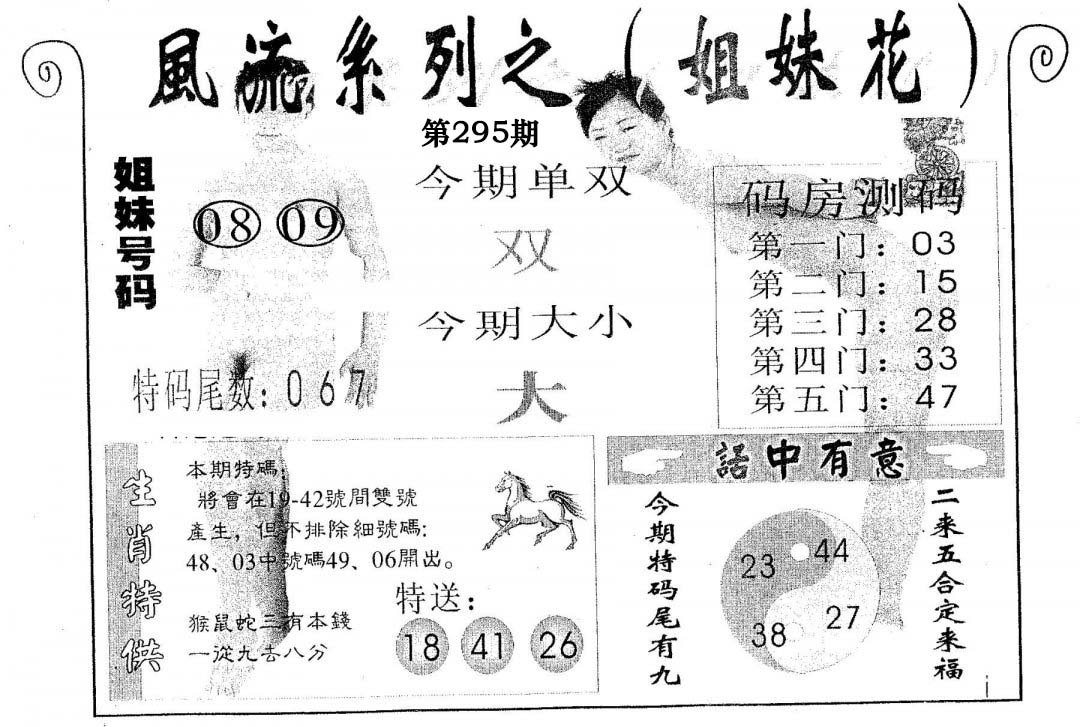 風流系列之（姐妹花）
第295期
姐妹号码
08 09
特码尾数：067
今期单双
双
今期大小
大
码房测码
第一门：03
第二门：15
第三门：28
第四门：33
第五门：47
生肖特供
本期特碼：
將會在19-42號間雙號
產生，但不排除細號碼:
48、03中號碼49、06開出。
猴鼠蛇三有本錢
一從九去八分
特送：
18 41 26
話中有意
今期特码尾有九
23 44
38 27
二来五合定来福